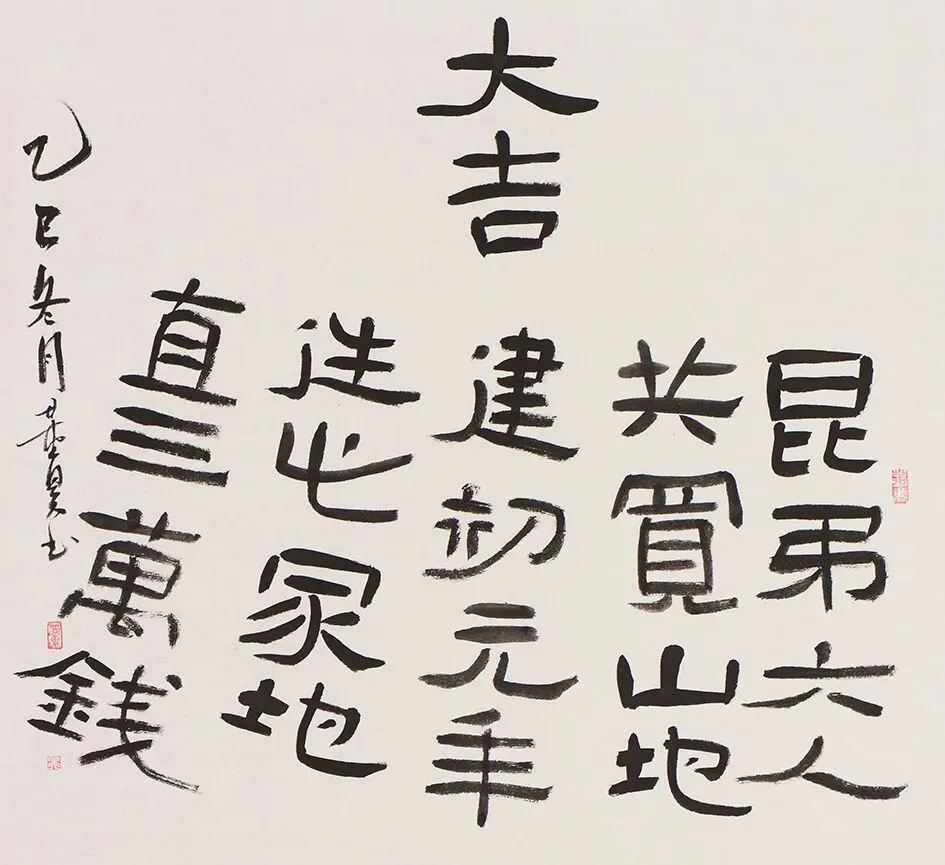 大吉
昆弟六人
共買山地
建初元年
造此冢地
直三萬錢
乙巳冬月